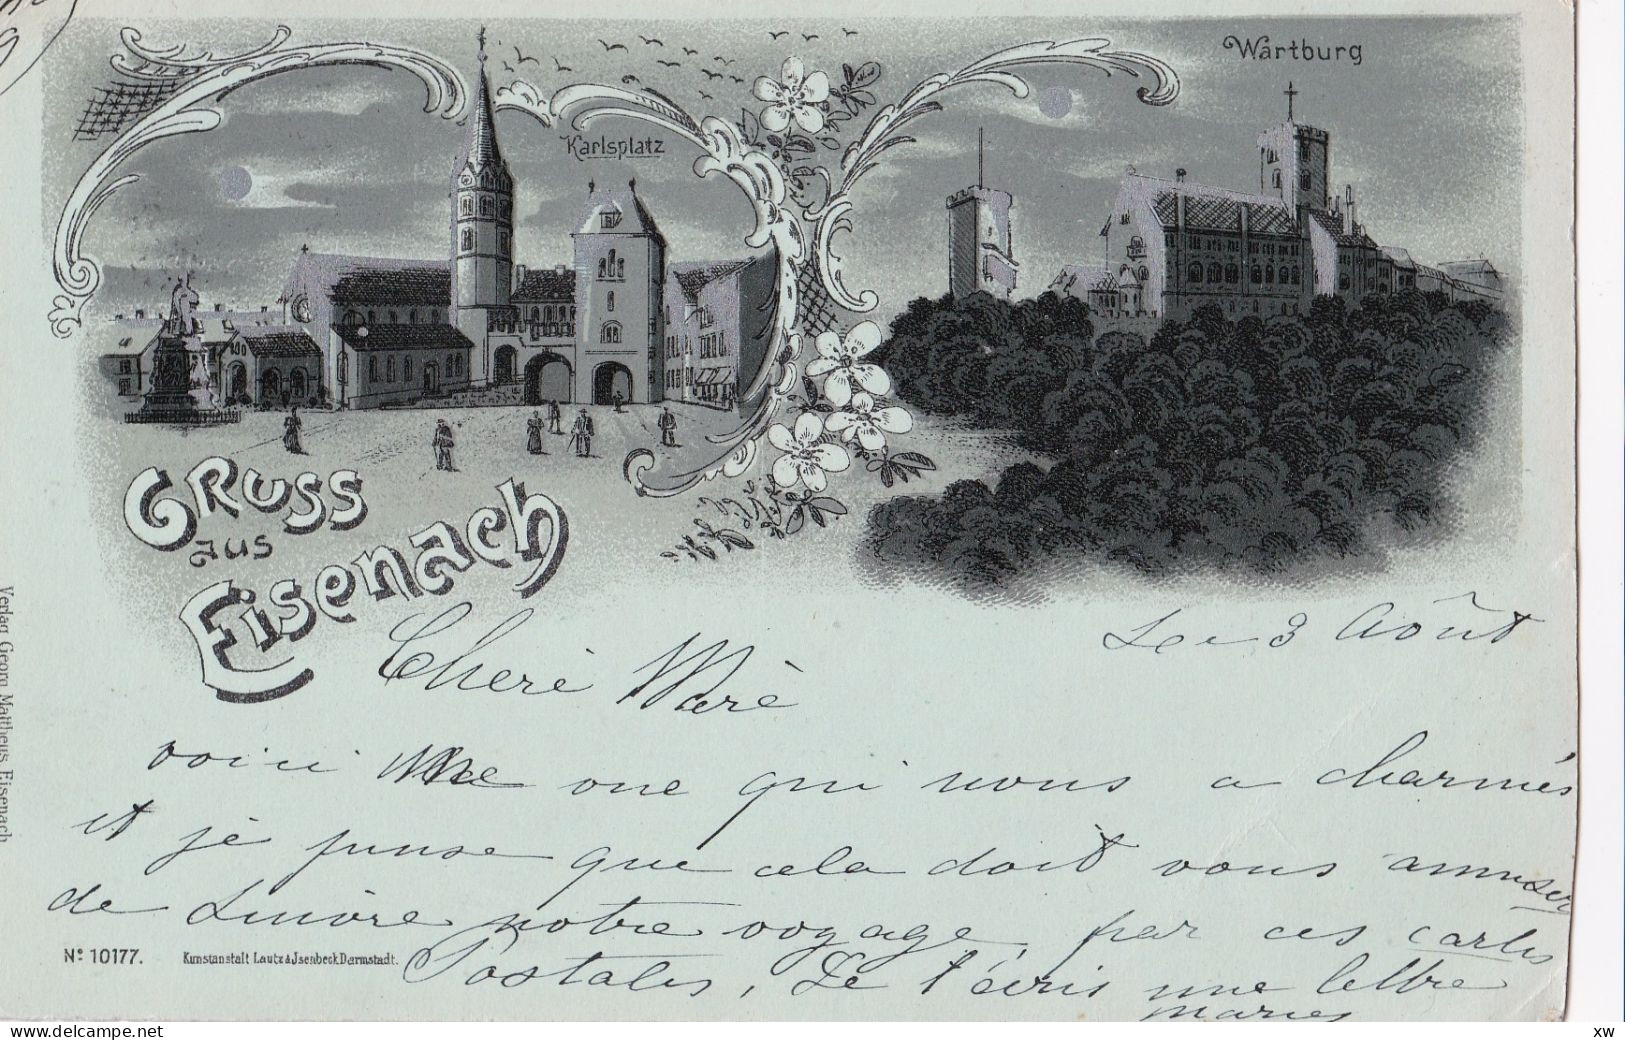 Wartburg
Karlsplatz
Gruss
aus
Eisenach
Le 3 Août
Cheré Marè
voici une qui nous a charmés
et jé pense que cela doit vous amuser
de suivre notre voyage, par ces cartes
Postales, Je t'écris une lettre
Nº 10177. Kunstanstalt Lautz & Jsenbeck Darmstadt.
Verlag Georg Mattheus Eisenach
www.delcampe.net
xw